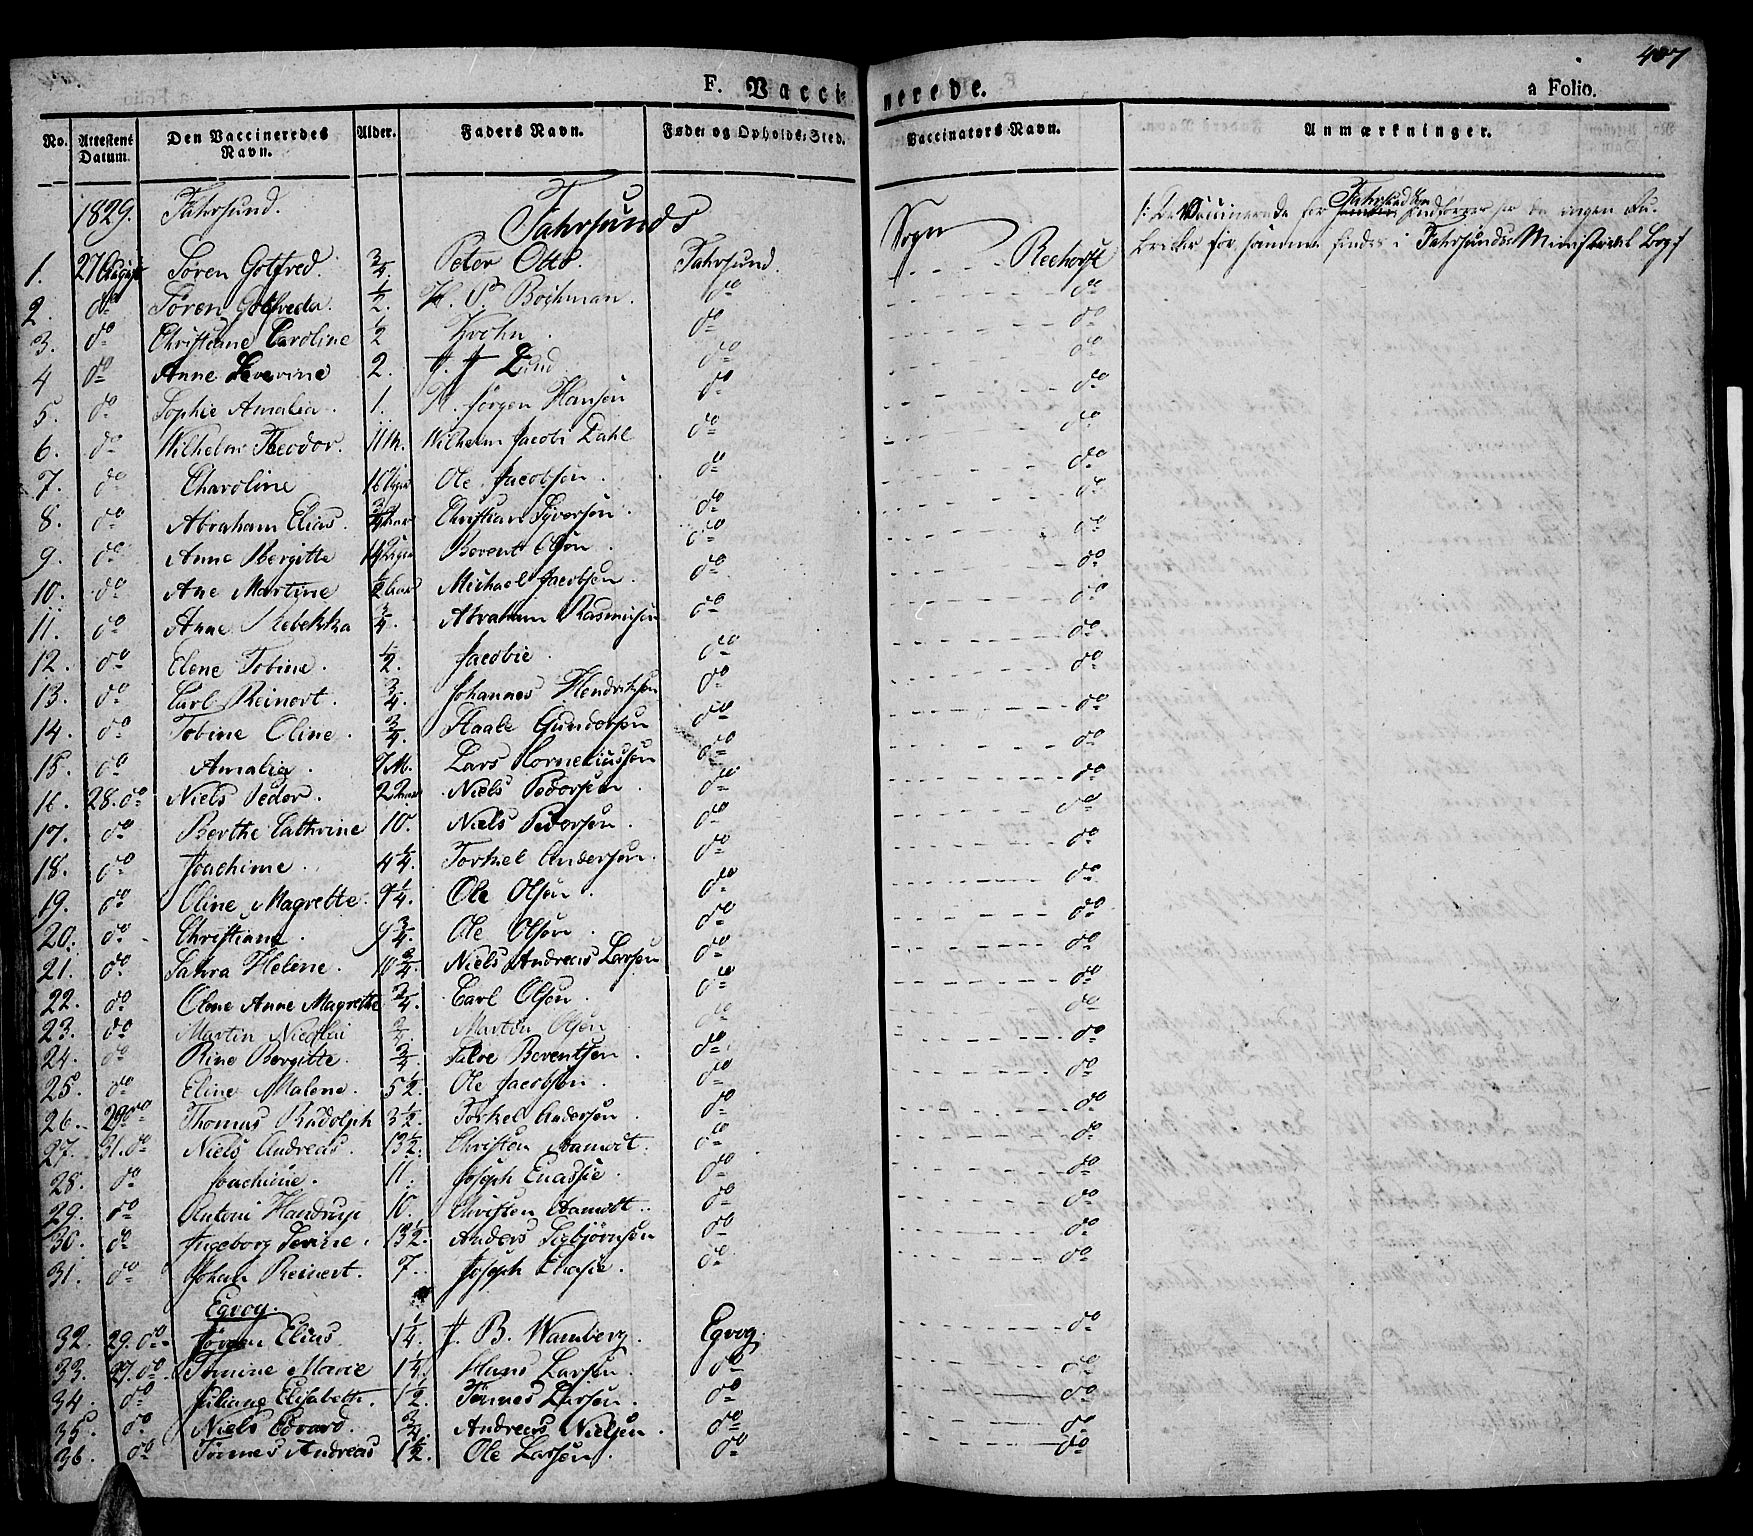 407
F. Vaccinerede. a Folio.
No. Attestens Datum. Den Vaccineredes Navn. Alder. Faders Navn. Føde: og Opholds: Sted. Vaccinators Navn. Anmærkninger.
1829. Fahrsund. Fahrsunds Sogn
1. 27 August Søren Gotfred. 3/4. Peter Otto. Fahrsund. Reehorst
2. do Søren Gotfreda. 1/2. Bochman. do do
3. do Christiane Caroline 1/2 Krohn. do do
4 do Anne Severine 2. Lund do do
5. do Sophie Amalia. 1. Jørgen Hansen do do
6. do Wilhelm Theodor. 11 M. Wilhelm Jacobi Dahl do do
7. do Charoline 16 Uger Ole Jacobsen. do do
8. do Abraham Elias. 3/4 Aar Christian Syversen. do do
9. do Anne Bergitte 14 Uger Berent Olsen. do do
10. do Ane Martine 1/2 Aar Michael Jacobsen. do do
11. do Anne Rebekka 3/4. Abraham Rasmusen do do
12. do Elene Tobine. 1/2. Jacobie. do do
13. do Carl Reinert. 3/4. Johannes Hendriksen do do
14. do Tobine Oline. 3/4. Staale Gundersen do do
15. do Amalia. 7 M. Lars Corneliussen do do
16. 28. do Niels Peder. 2 Aar Niels Pedersen. do do
17. do Berthe Cathrine 10. Niels Pedersen. do do
18. do Joachime. 4 1/4. Torkel Andersen. do do
19. do Oline Magrette. 9 1/4. Ole Olsen. do do
20. do Christiane. 9 3/4. Ole Olsen. do do
21. do Sahra Helene. 10 3/4. Niels Andreas Larsen do do
22. do Olene Anne Magrethe 3/4. Carl Olsen. do do
23. do Martin Nicolai 3/4. Martin Olsen do do
24. do Rine Bergitte. 3/4 Salve Berentsen. do do
25. do Eline Malene. 5 1/2. Ole Jacobsen. do do
26. 29 do Thomas Rudolph 3 1/2. Torkel Andersen. do do
27. 31. do Niels Andreas. 13 1/2. Christen Aamodt. do do
28. do Joachime. 11. Joseph Eliassie. do do
29. do Antoni Handrup 10. Christen Aamodt. do do
30. do Ingeborg Serine. 13 1/2. Anders Sigbjørnsen do do
31. do Johan Reinert. 7. Joseph Eliasie. do do
Egvog.
32. 29. do Jørgen Elias 1 1/4. J. B. Wamberg. Egvog. do
33. 27. do Tomine Marie 1 1/4. Hans Larsen. do do
34. do Juliane Elisabeth. 1 1/2. Tønnes Larsen. do do
35. do Niels Edvard. 3/4. Andreas Nielsen. do do
36. do Tønnes Andreas 1 1/2. Ole Larsen. do do
De Vaccinerede for Fahrsund indføres her da ingen Ru-
brikker for samme findes i Fahrsunds Ministerial Bog